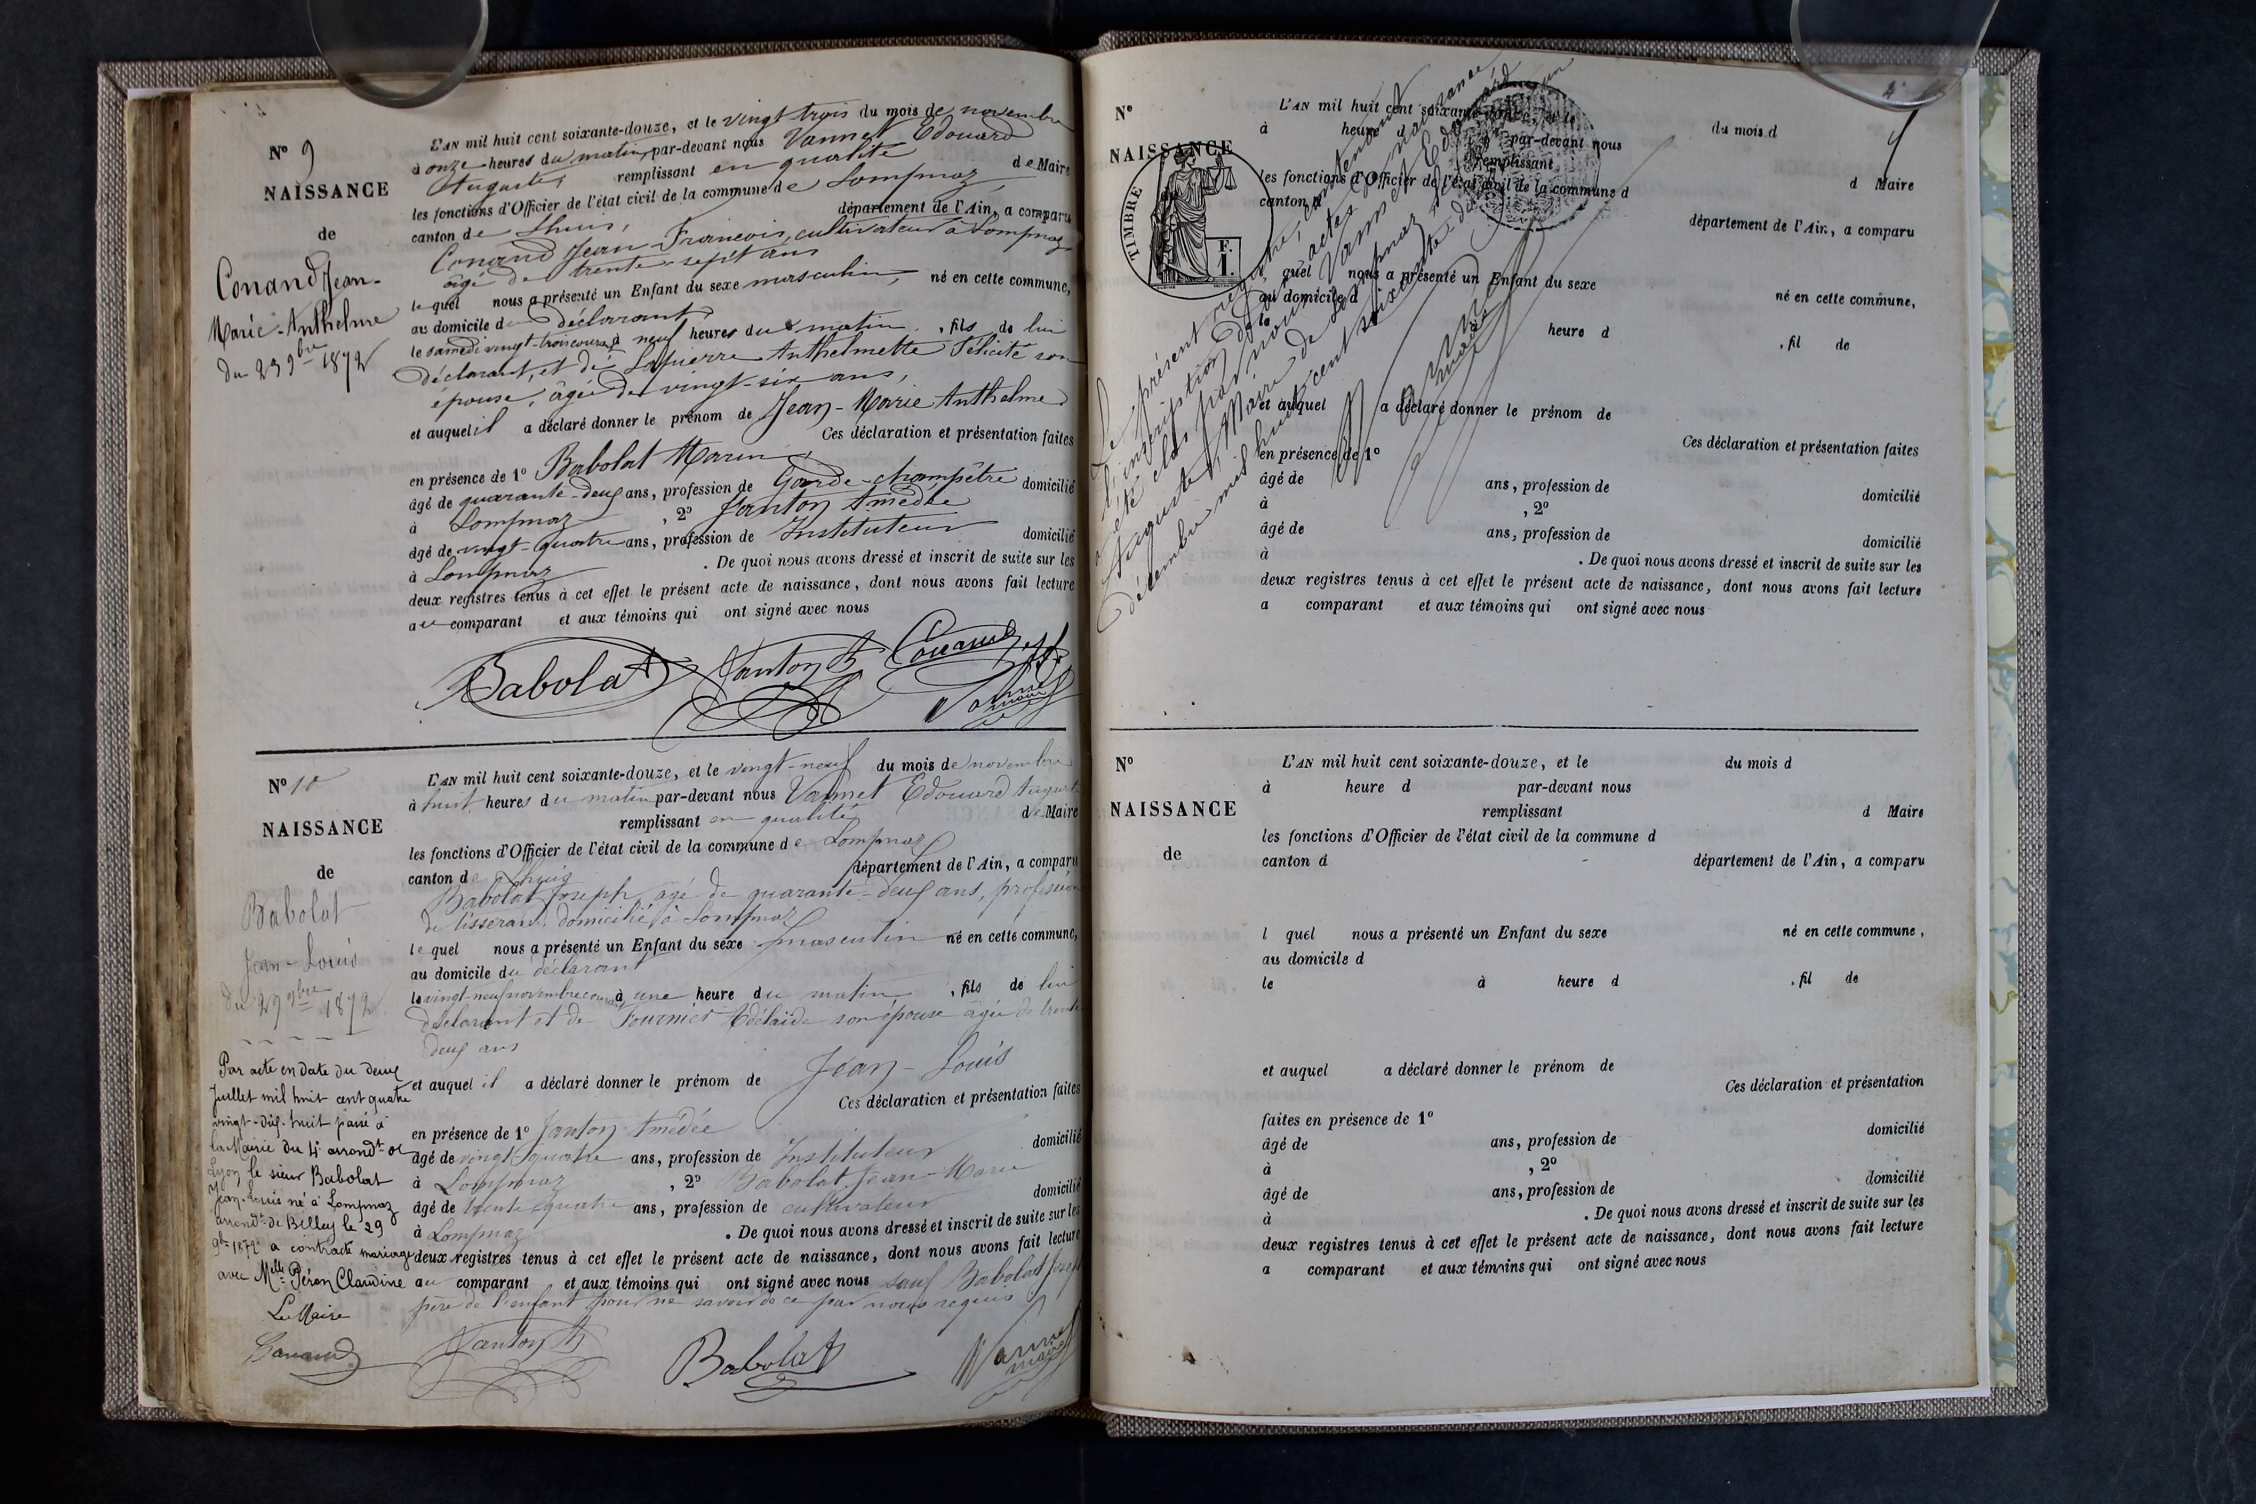 N° 9
NAISSANCE
de
Conand Jean-
Marie-Anthelme
du 23 9bre 1872
L'AN mil huit cent soixante-douze, et le vingt trois du mois de novembre
à onze heures du matin, par-devant nous Vannet Edouard
Auguste, remplissant en qualité de Maire
les fonctions d'Officier de l'état civil de la commune de Lompnaz
canton de Lhuis, département de l'Ain, a comparu
Conand Jean-François, cultivateur à Lompnaz
âgé de trente-sept ans
lequel nous a présenté un Enfant du sexe masculin, né en cette commune,
au domicile du déclarant
le samedi vingt-trois courant à neuf heures du matin, fils de lui
déclarant, et de Lapierre Anthelmette Félicité son
épouse, âgée de vingt-six ans,
et auquel il a déclaré donner le prénom de Jean-Marie Anthelme
Ces déclaration et présentation faites
en présence de 1° Babolat Marin,
âgé de quarante-deux ans, profession de Garde-champêtre domicilié
à Lompnaz, 2° Janton Amédée
âgé de vingt-quatre ans, profession de Instituteur domicilié
à Lompnaz. De quoi nous avons dressé et inscrit de suite sur les
deux registres tenus à cet effet le présent acte de naissance, dont nous avons fait lecture
au comparant et aux témoins qui ont signé avec nous
Babolat Janton A Conand
Vannet
maire
N° 10
NAISSANCE
de
Babolat
Jean-Louis
du 29 9bre 1872
L'AN mil huit cent soixante-douze, et le vingt-neuf du mois de novembre
à huit heures du matin par-devant nous Vannet Edouard Auguste
remplissant en qualité de Maire
les fonctions d'Officier de l'état civil de la commune de Lompnaz
canton de Lhuis département de l'Ain, a comparu
Babolat Joseph, âgé de quarante-deux ans, profession
de tisserand, domicilié à Lompnaz
lequel nous a présenté un Enfant du sexe masculin né en cette commune,
au domicile du déclarant
le vingt-neuf novembre courant à une heure du matin, fils de lui
déclarant et de Fournier Adélaïde son épouse âgée de trente
deux ans
et auquel il a déclaré donner le prénom de Jean-Louis
Ces déclaration et présentation faites
en présence de 1° Janton Amédée
âgé de vingt quatre ans, profession de Instituteur domicilié
à Lompnaz, 2° Babolat Jean-Marie
âgé de trente quatre ans, profession de cultivateur domicilié
à Lompnaz. De quoi nous avons dressé et inscrit de suite sur les
deux registres tenus à cet effet le présent acte de naissance, dont nous avons fait lecture
au comparant et aux témoins qui ont signé avec nous sauf Babolat Joseph
père de l'enfant pour ne savoir de ce par nous requis
Janton A Babolat Vannet
maire
Par acte en date du deux
Juillet mil huit cent quatre
vingt-dix-huit passé à
la Mairie du 4e arrondt de
Lyon le sieur Babolat
Jean-Louis né à Lompnaz
arrondt de Belley le 29
9bre 1872 a contracté mariage
avec Melle Péron Claudine
Le Maire
N°
NAISSANCE
TIMBRE
F.
1.
L'AN mil huit cent soixante-douze, et le du mois d
à heure d par-devant nous
remplissant d Maire
les fonctions d'Officier de l'état civil de la commune d
canton d département de l'Ain, a comparu
l quel nous a présenté un Enfant du sexe né en cette commune,
au domicile d
le heure d , fil de
et auquel a déclaré donner le prénom de
Ces déclaration et présentation faites
en présence de 1°
âgé de ans, profession de domicilié
à , 2°
âgé de ans, profession de domicilié
à . De quoi nous avons dressé et inscrit de suite sur les
deux registres tenus à cet effet le présent acte de naissance, dont nous avons fait lecture
a comparant et aux témoins qui ont signé avec nous
Le présent registre, contenant
l'inscription de actes de naissance
a été clos par nous Vannet Edouard
Auguste, Maire de Lompnaz
décembre mil huit cent soixante-
Vannet
maire
N°
NAISSANCE
de
L'AN mil huit cent soixante-douze, et le du mois d
à heure d par-devant nous
remplissant d Maire
les fonctions d'Officier de l'état civil de la commune d
canton d département de l'Ain, a comparu
l quel nous a présenté un Enfant du sexe né en cette commune,
au domicile d
le à heure d , fil de
et auquel a déclaré donner le prénom de
Ces déclaration et présentation
faites en présence de 1°
âgé de ans, profession de domicilié
à , 2°
âgé de ans, profession de domicilié
à . De quoi nous avons dressé et inscrit de suite sur les
deux registres tenus à cet effet le présent acte de naissance, dont nous avons fait lecture
a comparant et aux témoins qui ont signé avec nous